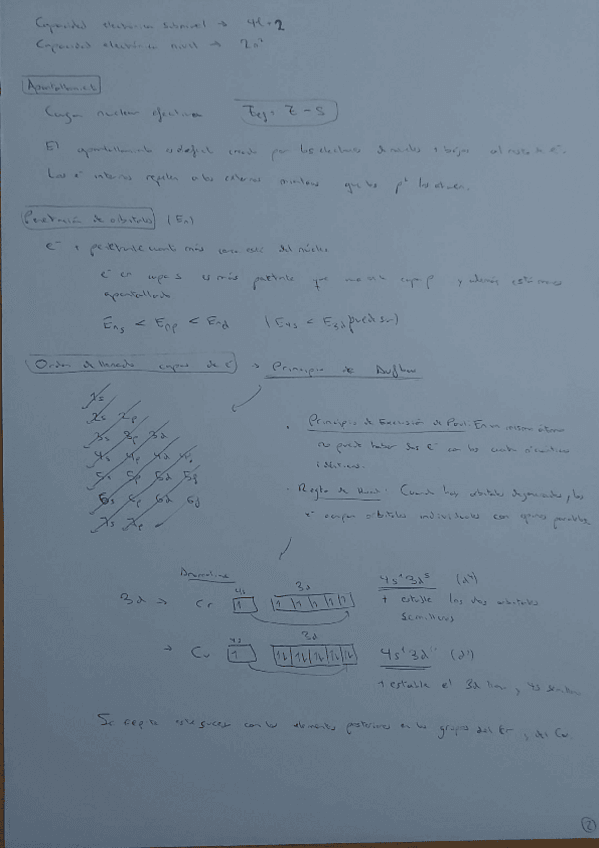 Capacidad electrónica subnivel → 4l+2
Capacidad electrónica nivel → 2n²
Apantallamiento
Carga nuclear efectiva Zef = Z - S
El apantallamiento es el creado por los electrones de niveles + bajos al resto de e⁻.
Los e⁻ internos repelen a los externos mientras que los p⁺ los atraen.
Penetración de orbitales (En)
e⁻ + penetrante cuanto más cerca esté del núcleo
e⁻ en capa s es más penetrante que en capa p y además está menos
apantallado
Ens < Enp < End (E4s < E3d
Orden de llenado capas de e⁻ → Principio de Aufbau
1s
2s 2p
3s 3p 3d
4s 4p 4d 4f
5s 5p 5d 5f
6s 6p 6d
7s 7p
· Principio de Exclusión de Pauli: En un mismo átomo
no puede haber dos e⁻ con los cuatro nº cuánticos
idénticos.
· Regla de Hund: Cuando hay orbitales degenerados, los
e⁻ ocupan orbitales individuales con espines paralelos.
Anomalías
3d → Cr 4s 3d 4s¹3d⁵
+ estable los dos orbitales
semillenos
→ Cu 4s 3d 4s¹3d
+ estable el 3d lleno y 4s
Se repite este suceso con los elementos posteriores en los grupos del Cr y del Cu.
2